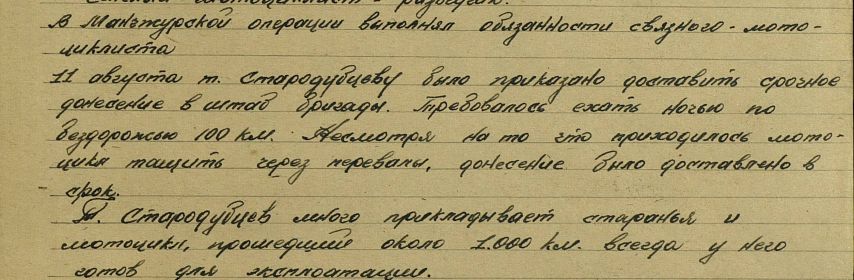 мотоциклист - разведчик.
В Манчжурской операции выполнял обязанности связного - мото-
циклиста
11 августа т. Стародубцеву было приказано доставить срочное
донесение в штаб бригады. Требовалось ехать ночью по
бездорожью 100 км. Несмотря на то что приходилось мото-
цикл тащить через перевалы, донесение было доставлено в
срок.
Т. Стародубцев много прикладывает старанья и
мотоцикл, прошедший около 1.000 км. всегда у него
готов для эксплоатации.